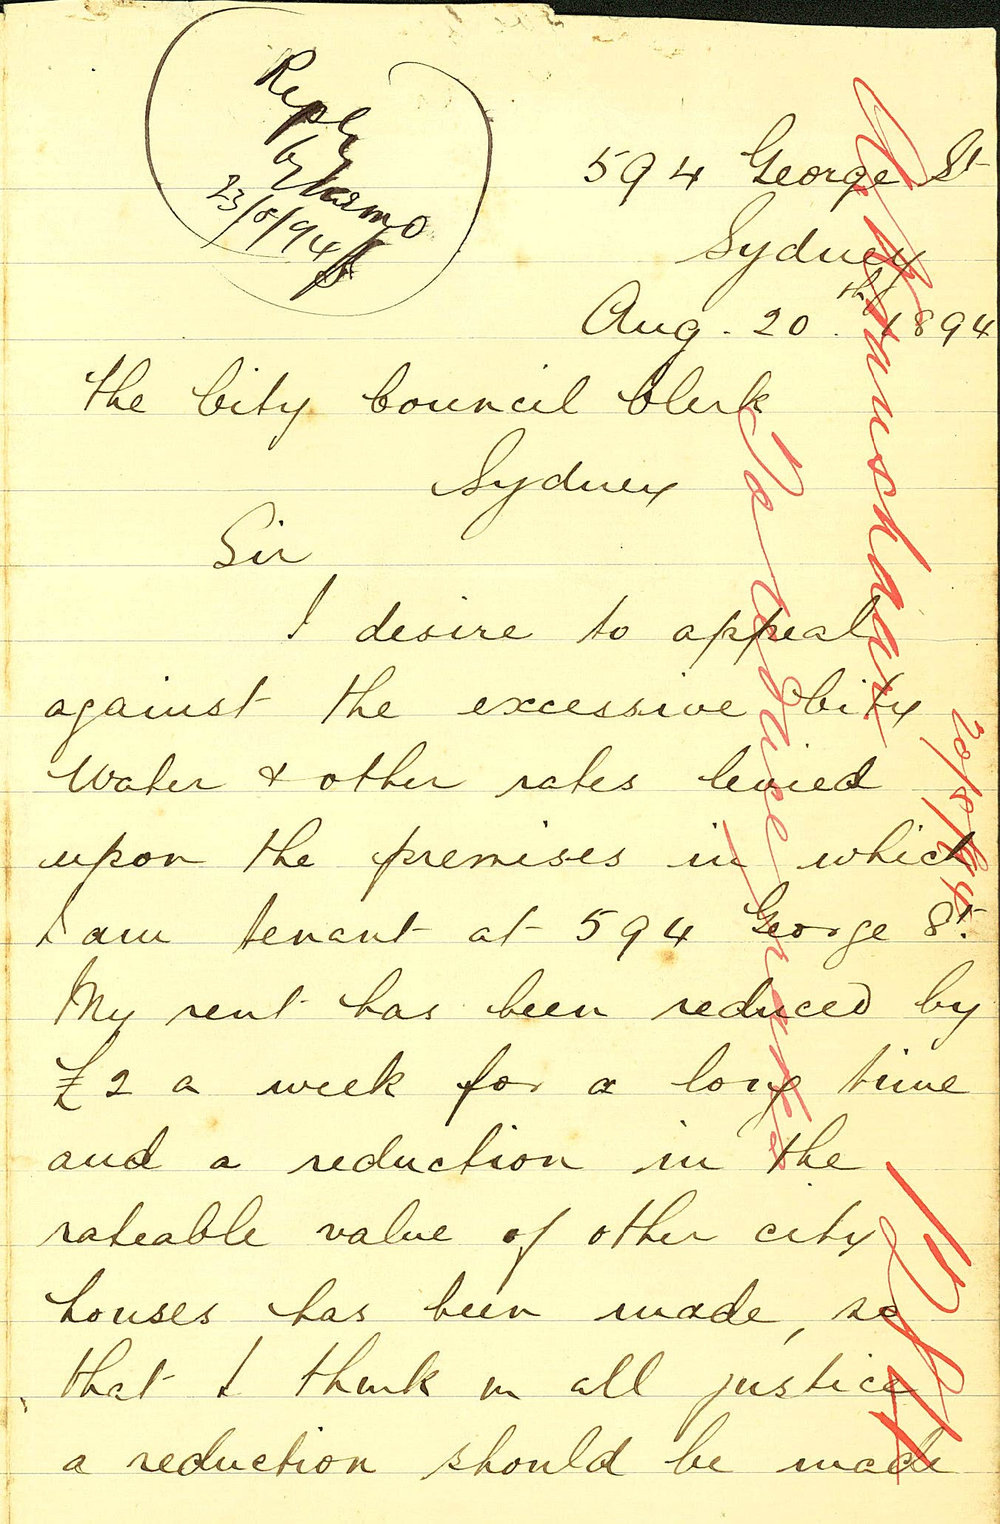 Reply
by
23/8/94
594 George St
Sydney
Aug. 20th 1894
The City Council Clerk
Sydney
Sir
I desire to appeal
against the excessive City
Water & other rates levied
upon the premises in which
I am tenant at 594 George St.
My rent has been reduced by
£2 a week for a long time
and a reduction in the
rateable value of other city
houses has been made, so
that I think in all justice
a reduction should be made
20/8/94